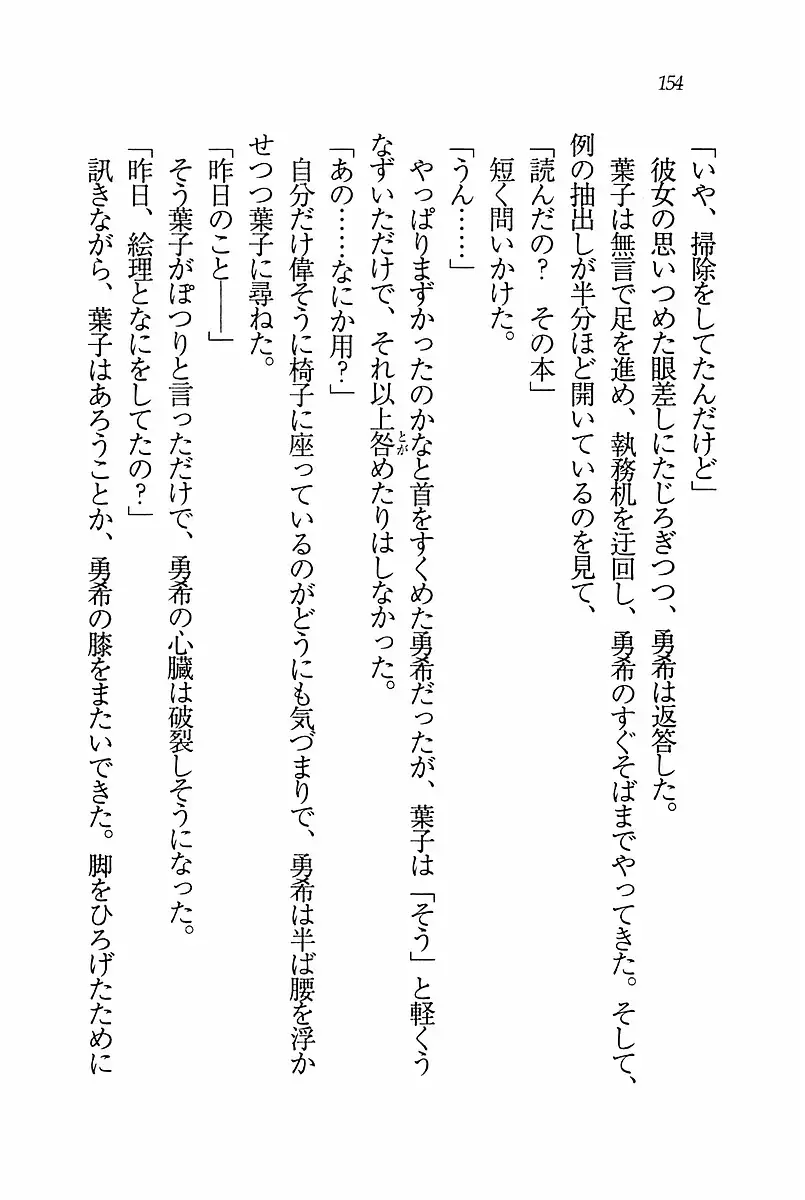 154
「いや、掃除をしてたんだけど」
彼女の思いつめた眼差しにたじろぎつつ、勇希は返答した。
葉子は無言で足を進め、執務机を迂回し、勇希のすぐそばまでやってきた。そして、
例の抽出しが半分ほど開いているのを見て、
「読んだの？　その本」
短く問いかけた。
「うん……」
やっぱりまずかったのかなと首をすくめた勇希だったが、葉子は「そう」と軽くう
なずいただけで、それ以上咎めたりはしなかった。
とが
「あの……なにか用？」
自分だけ偉そうに椅子に座っているのがどうにも気づまりで、勇希は半ば腰を浮か
せつつ葉子に尋ねた。
「昨日のこと――」
そう葉子がぽつりと言っただけで、勇希の心臓は破裂しそうになった。
「昨日、絵理となにをしてたの？」
訊きながら、葉子はあろうことか、勇希の膝をまたいできた。脚をひろげたために